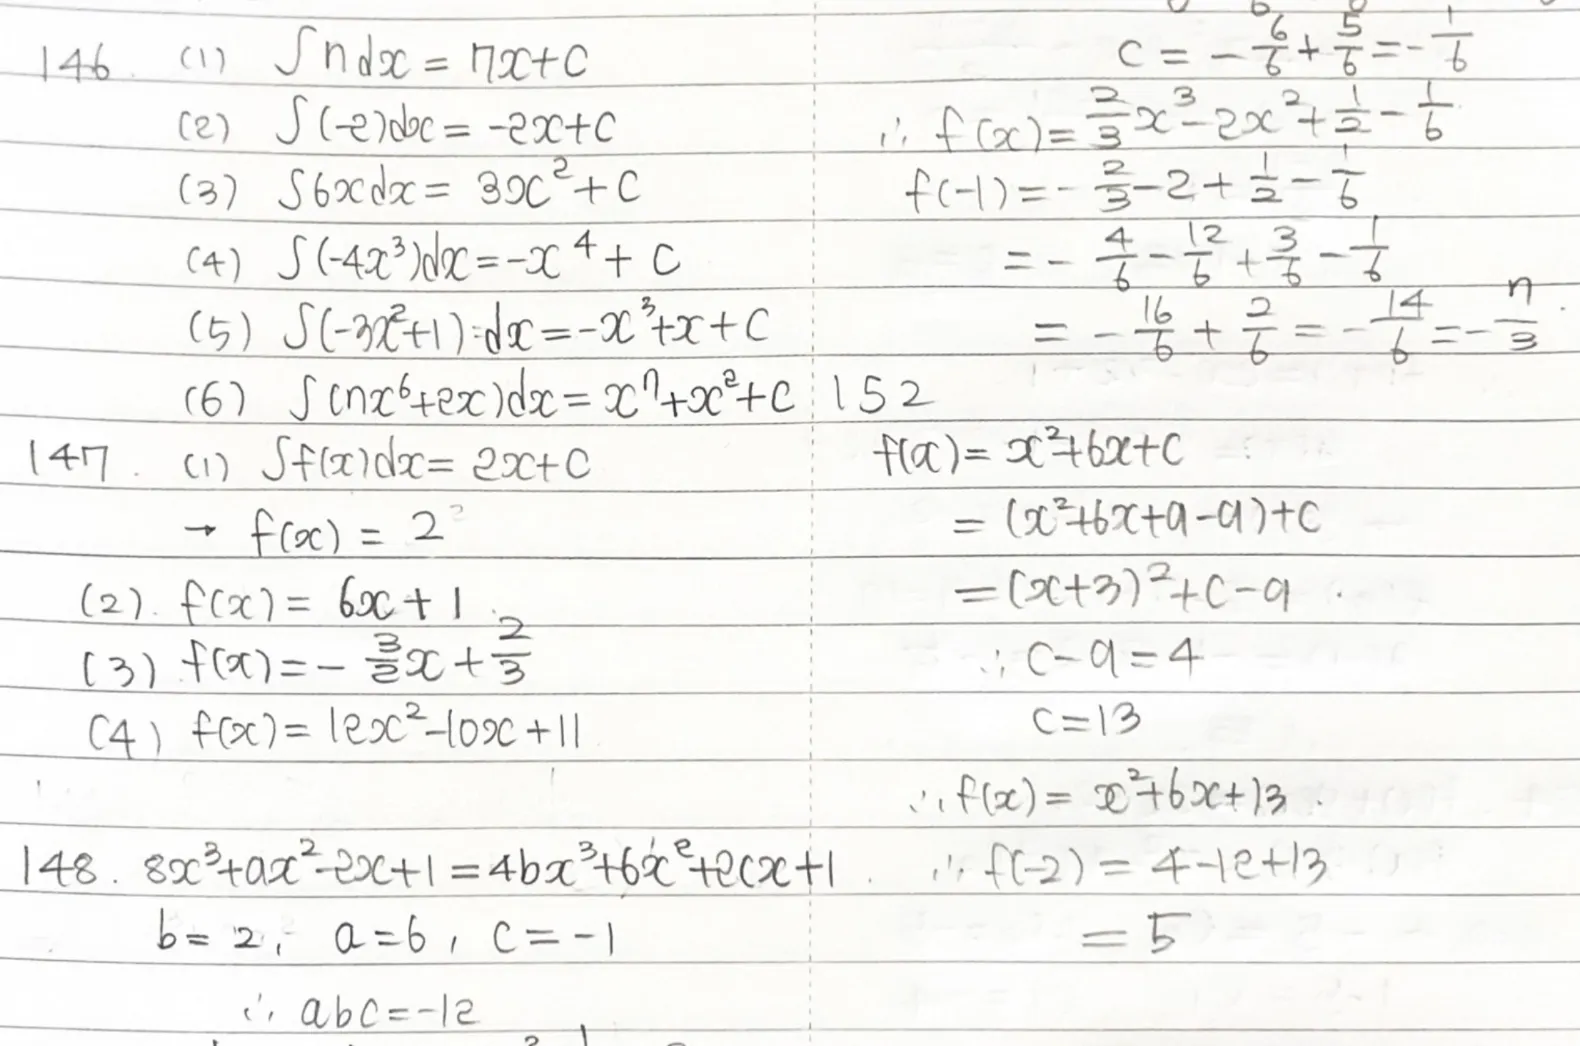 146. (1) ∫7dx = 7x+C
(2) ∫(-2)dx = -2x+C
(3) ∫6xdx = 3x²+C
(4) ∫(-4x³)dx = -x⁴+C
(5) ∫(-3x²+1)dx = -x³+x+C
(6) ∫(7x⁶+2x)dx = x⁷+x²+C
147. (1) ∫f(x)dx = 2x+C
→ f(x) = 2
(2). f(x) = 6x+1.
(3) f(x) = -3/2x+2/3
(4) f(x) = 12x²-10x+11
148. 8x³+ax²-2x+1 = 4bx³+6x²+2cx+1
b=2, a=6, c=-1
∴ abc=-12
C = -6/6+5/6 = -1/6
∴ f(x) = 2/3x³-2x²+1/2-1/6
f(-1) = -2/3-2+1/2-1/6
= -4/6-12/6+3/6-1/6
= -16/6+2/6 = -14/6 = -7/3.
152
f(x) = x²+6x+C
= (x²+6x+9-9)+C
= (x+3)²+C-9.
∴ C-9=4
C=13
∴ f(x) = x²+6x+13.
∴ f(-2) = 4-12+13
= 5